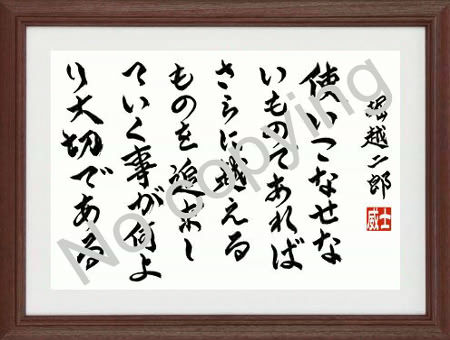 堀越二郎
威士
使いこなせな
いものであれば
さらに越える
ものを追求し
ていく事が何よ
り大切である
No copying